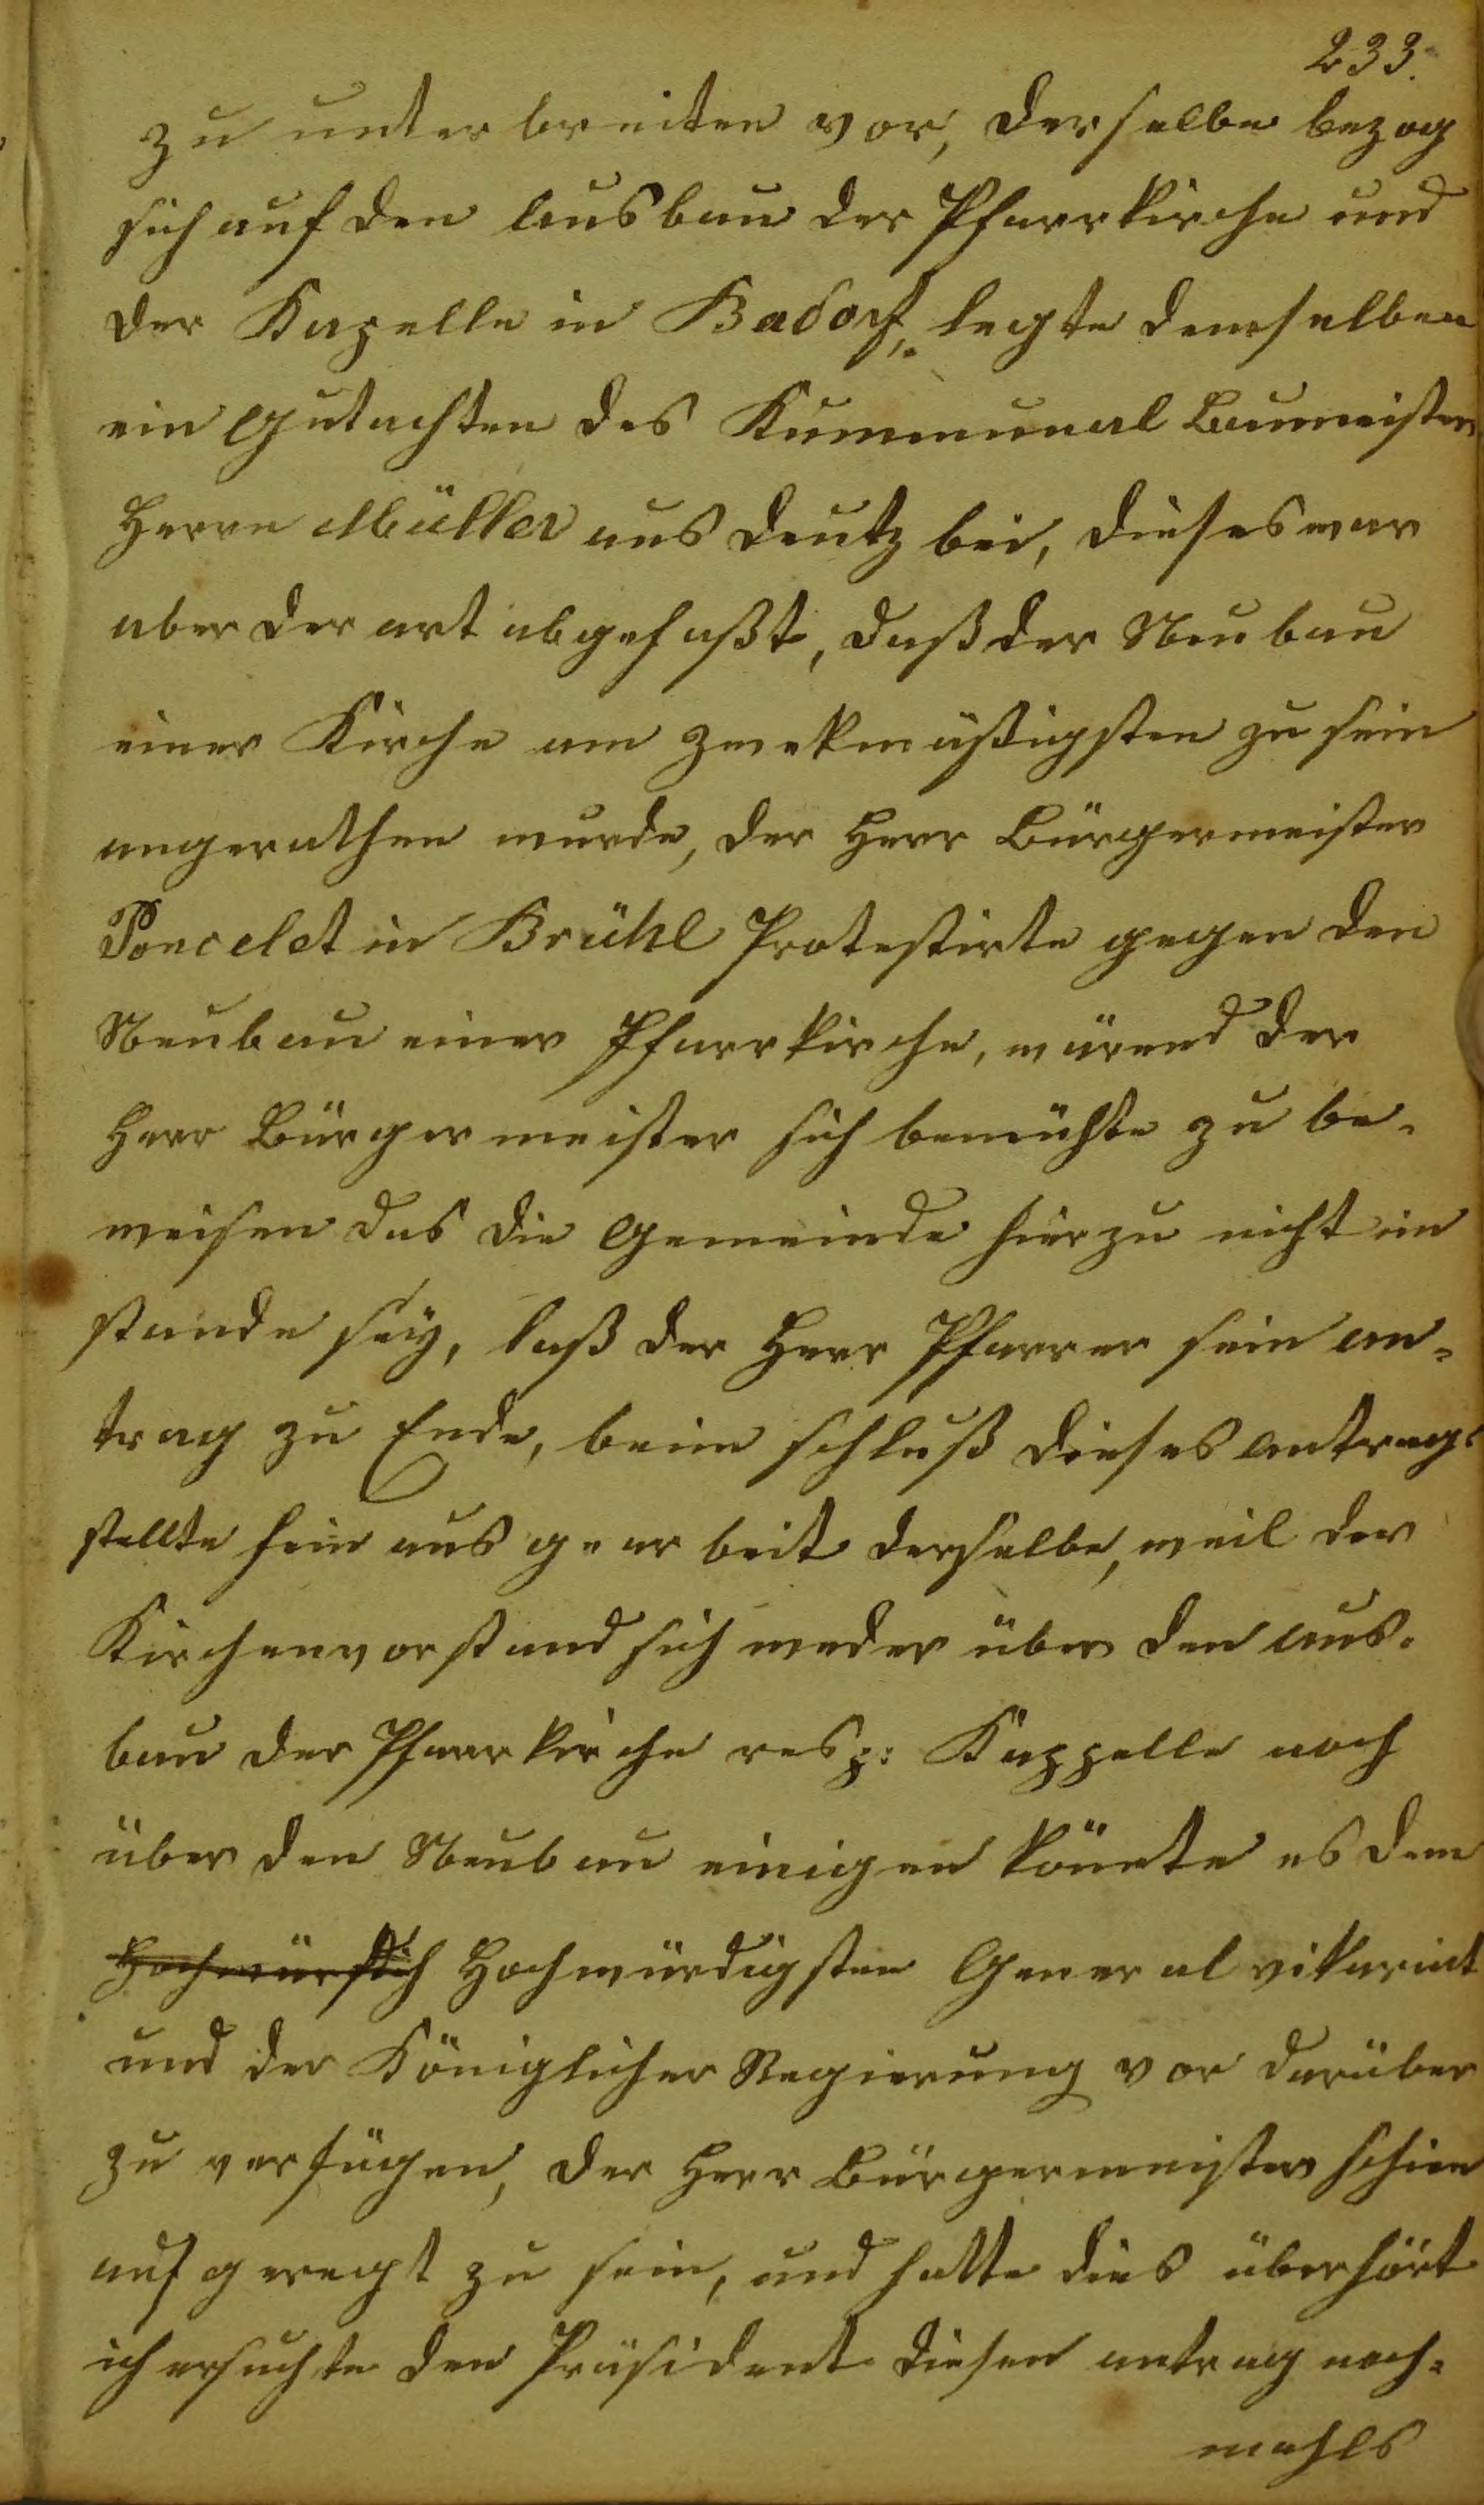 233.
zu unter breiten vor, derselbe bezog
sich auf den Ausbau der Pfarrkirche und
der Kapelle in Badorf, legte demselben
ein Gutachten des Kummunal Baumeisters
Herrn Müller aus Deutz bei, dieses war
aber der art abgefaßt, daß der Neubau
einer Kirche am zwekmäßigsten zu sein
angerathen wurde, der Herr Bürgermeister
Poncelet in Brühl Protestirte gegen den
Neubau einer Pfarrkirche, wärend der
Herr Bürgermeister sich bemühte zu be-
weisen das die Gemeinde hierzu nicht im
stande sey, laß der Herr Pfarrer sein an-
trag zu Ende, beim schluß dieses Antrags
stellte sein aus gear beit derselbe, weil der
Kirchenvorstand sich weder über den Aus-
bau der Pfarrkirche resp: Kappelle noch
über den Neubau einigen könnte es dem
Hochwürdigsten Generalvikariat
und der Königlicher Regierung vor darüber
zu verfügen, der Herr Bürgermeister schien
aufgeregt zu sein, und hatte dies überhört
ich ersuchte den Präsident diesen antrag noch-
mahls